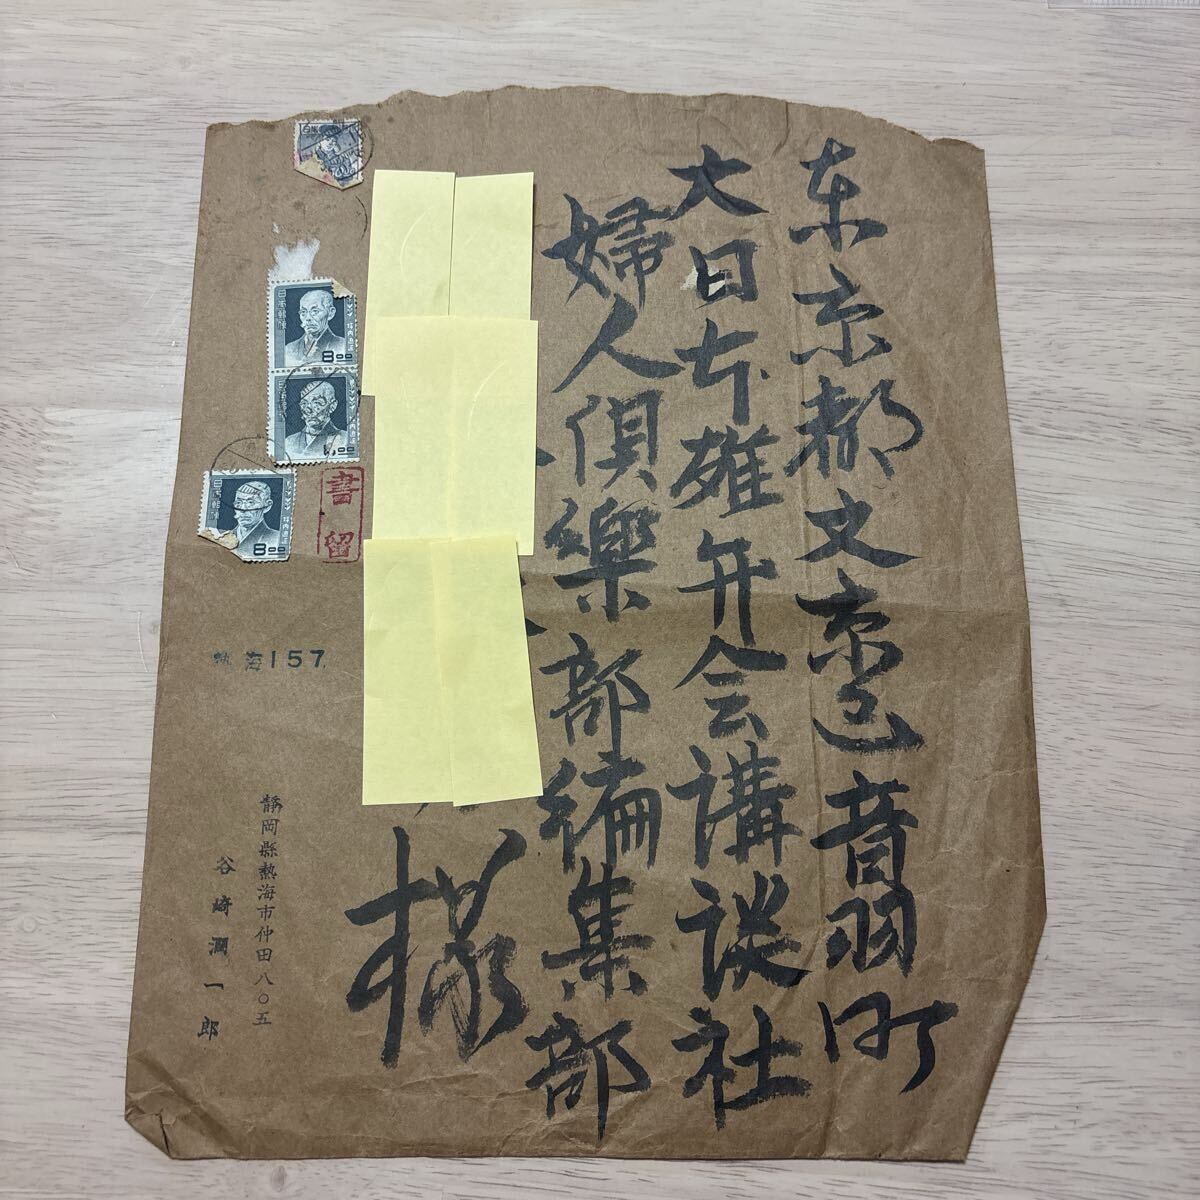 东京都文京區音羽町
大日本雄弁会講談社
婦人倶樂部編集部
様
日本郵便
坪内逍遥
8.00
日本郵便
坪内逍遥
8.00
日本郵便
坪内逍遥
8.00
書留
熱海157
靜岡縣熱海市仲田八〇五
谷崎潤一郎